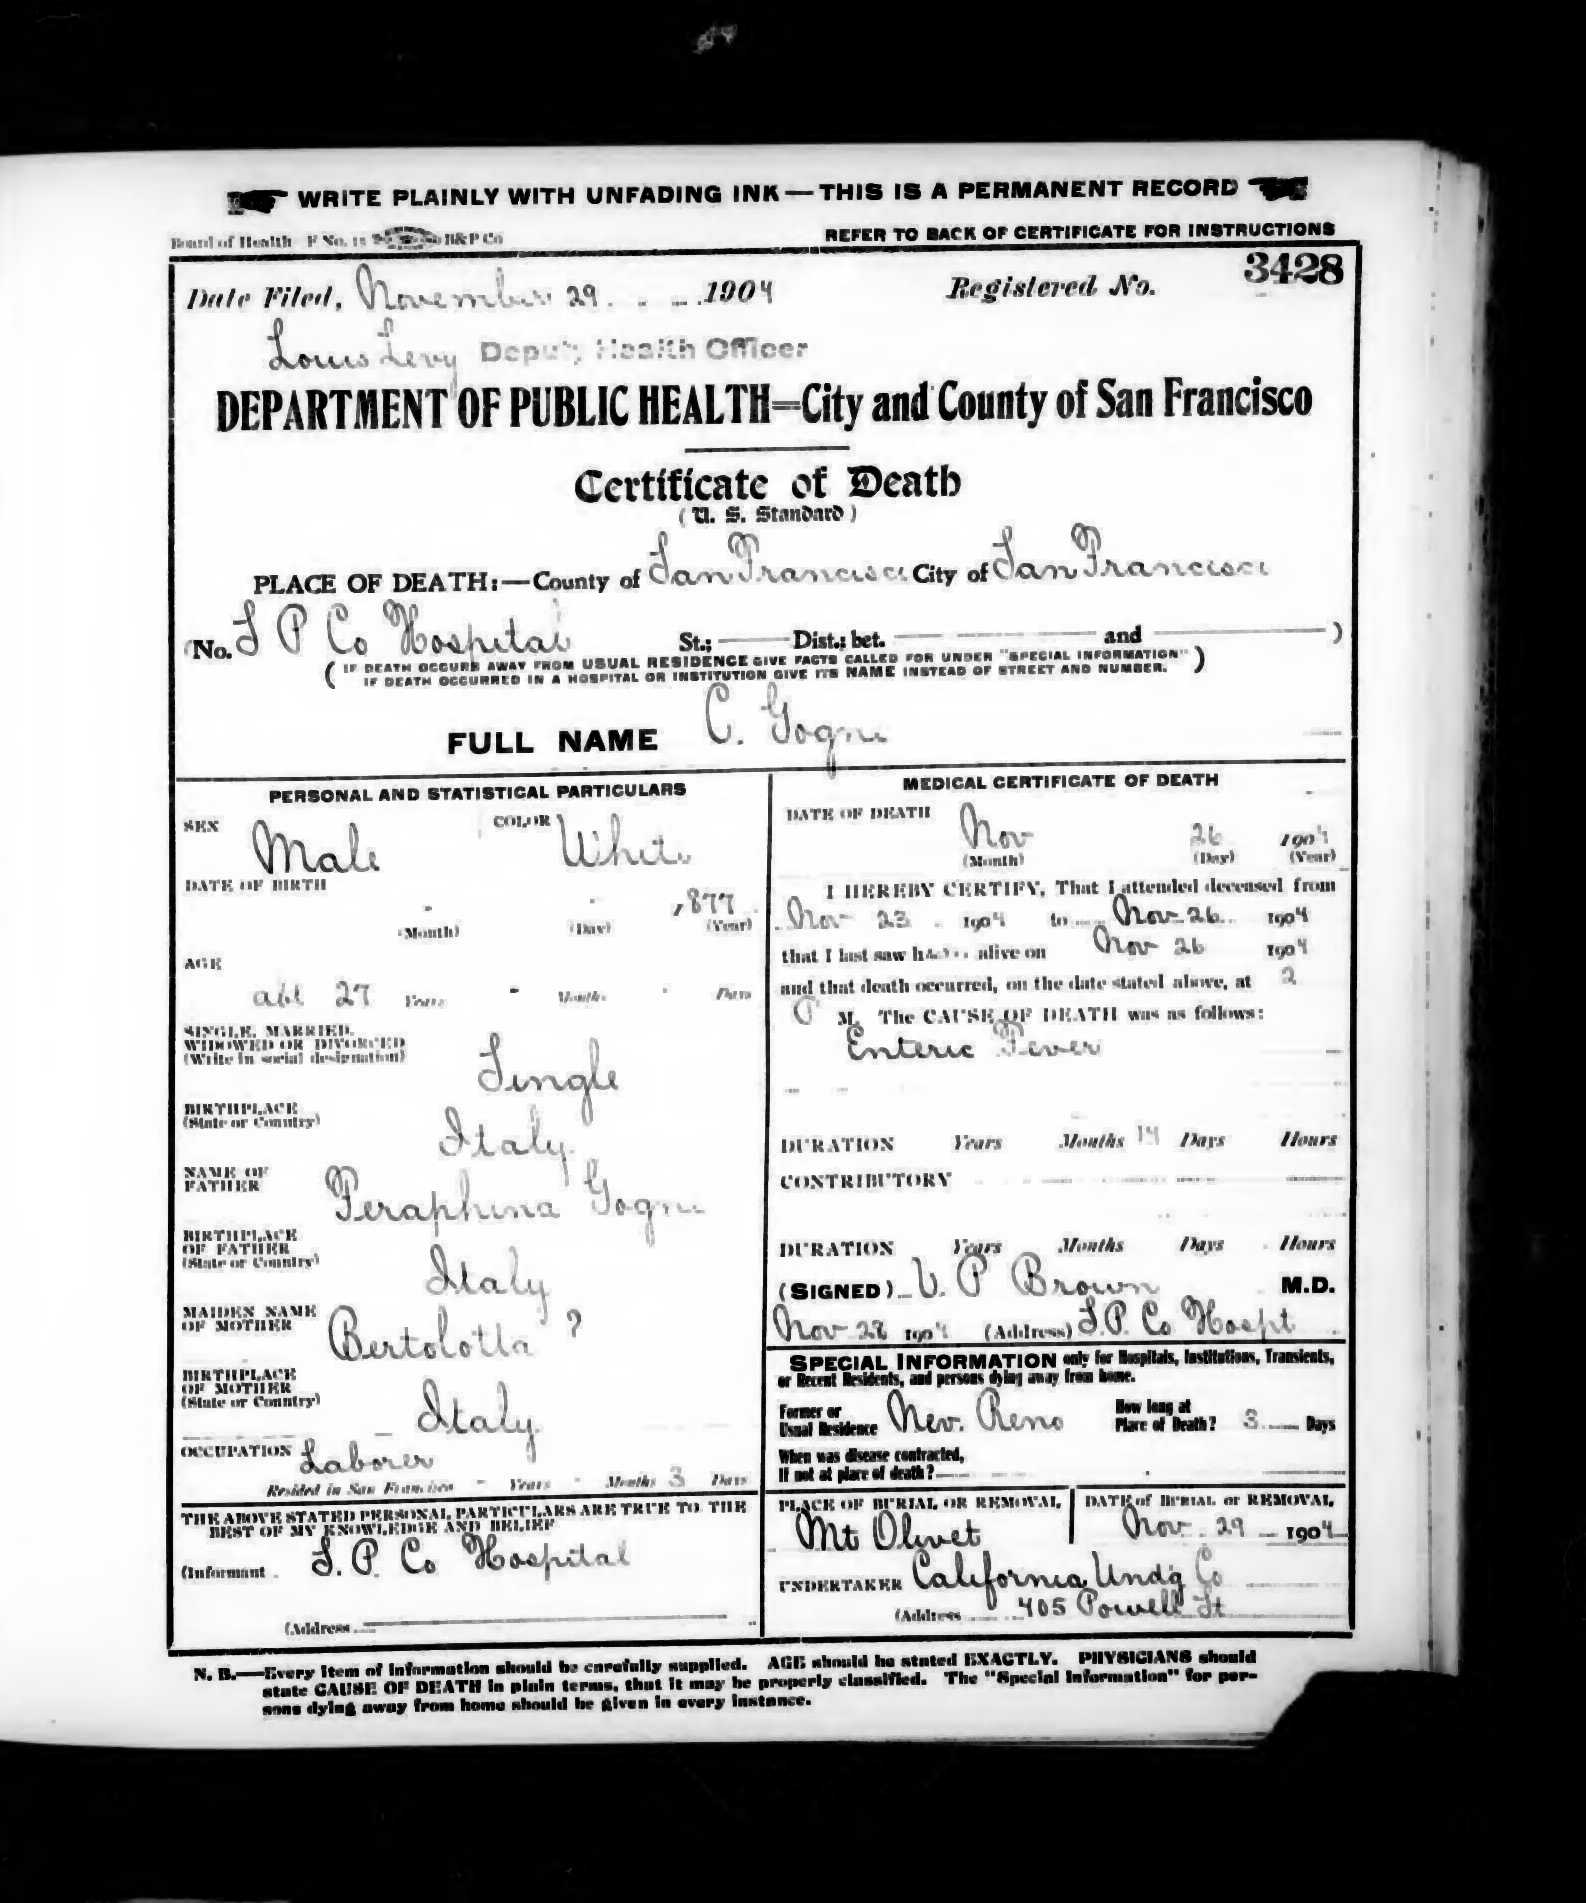 WRITE PLAINLY WITH UNFADING INK — THIS IS A PERMANENT RECORD
Board of Health F No. 15 H&P Co
REFER TO BACK OF CERTIFICATE FOR INSTRUCTIONS
Date Filed, November 29 1904 Registered No. 3428
Louis Levy Deputy Health Officer
DEPARTMENT OF PUBLIC HEALTH=City and County of San Francisco
Certificate of Death
(U. S. Standard)
PLACE OF DEATH:—County of San Francisco City of San Francisco
(No. S P Co Hospital St.; Dist.; bet. and )
( IF DEATH OCCURS AWAY FROM USUAL RESIDENCE GIVE FACTS CALLED FOR UNDER "SPECIAL INFORMATION" )
IF DEATH OCCURRED IN A HOSPITAL OR INSTITUTION GIVE ITS NAME INSTEAD OF STREET AND NUMBER.
FULL NAME C. Gogni
PERSONAL AND STATISTICAL PARTICULARS
SEX Male COLOR White
DATE OF BIRTH
- - 1877
(Month) (Day) (Year)
AGE
abt 27 Years - Months - Days
SINGLE, MARRIED,
WIDOWED OR DIVORCED
(Write in social designation)
Single
BIRTHPLACE
(State or Country)
Italy
NAME OF
FATHER
Feraphina Gogni
BIRTHPLACE
OF FATHER
(State or Country)
Italy
MAIDEN NAME
OF MOTHER
Bertolotta ?
BIRTHPLACE
OF MOTHER
(State or Country)
Italy
OCCUPATION Laborer
Resided in San Francisco - Years - Months 3 Days
THE ABOVE STATED PERSONAL PARTICULARS ARE TRUE TO THE
BEST OF MY KNOWLEDGE AND BELIEF
(Informant S. P. Co Hospital
(Address
MEDICAL CERTIFICATE OF DEATH
DATE OF DEATH
Nov 26 1904
(Month) (Day) (Year)
I HEREBY CERTIFY, That I attended deceased from
Nov 23 1904 to Nov 26 1904
that I last saw him alive on Nov 26 1904
and that death occurred, on the date stated above, at 2
P M. The CAUSE OF DEATH was as follows:
Enteric Fever
DURATION Years Months 14 Days Hours
CONTRIBUTORY
DURATION Years Months Days Hours
(SIGNED) V. P Brown M.D.
Nov 28 1904 (Address) S.P. Co Hospt
SPECIAL INFORMATION only for Hospitals, Institutions, Transients,
or Recent Residents, and persons dying away from home.
Former or
Usual Residence Nev. Reno
How long at
Place of Death? 3 Days
When was disease contracted,
If not at place of death?
PLACE OF BURIAL OR REMOVAL
Mt Olivet
DATE of BURIAL or REMOVAL
Nov. 29 1904
UNDERTAKER California Undg Co
(Address 405 Powell St
N. B.—Every item of information should be carefully supplied. AGE should be stated EXACTLY. PHYSICIANS should
state CAUSE OF DEATH in plain terms, that it may be properly classified. The "Special Information" for per-
sons dying away from home should be given in every instance.